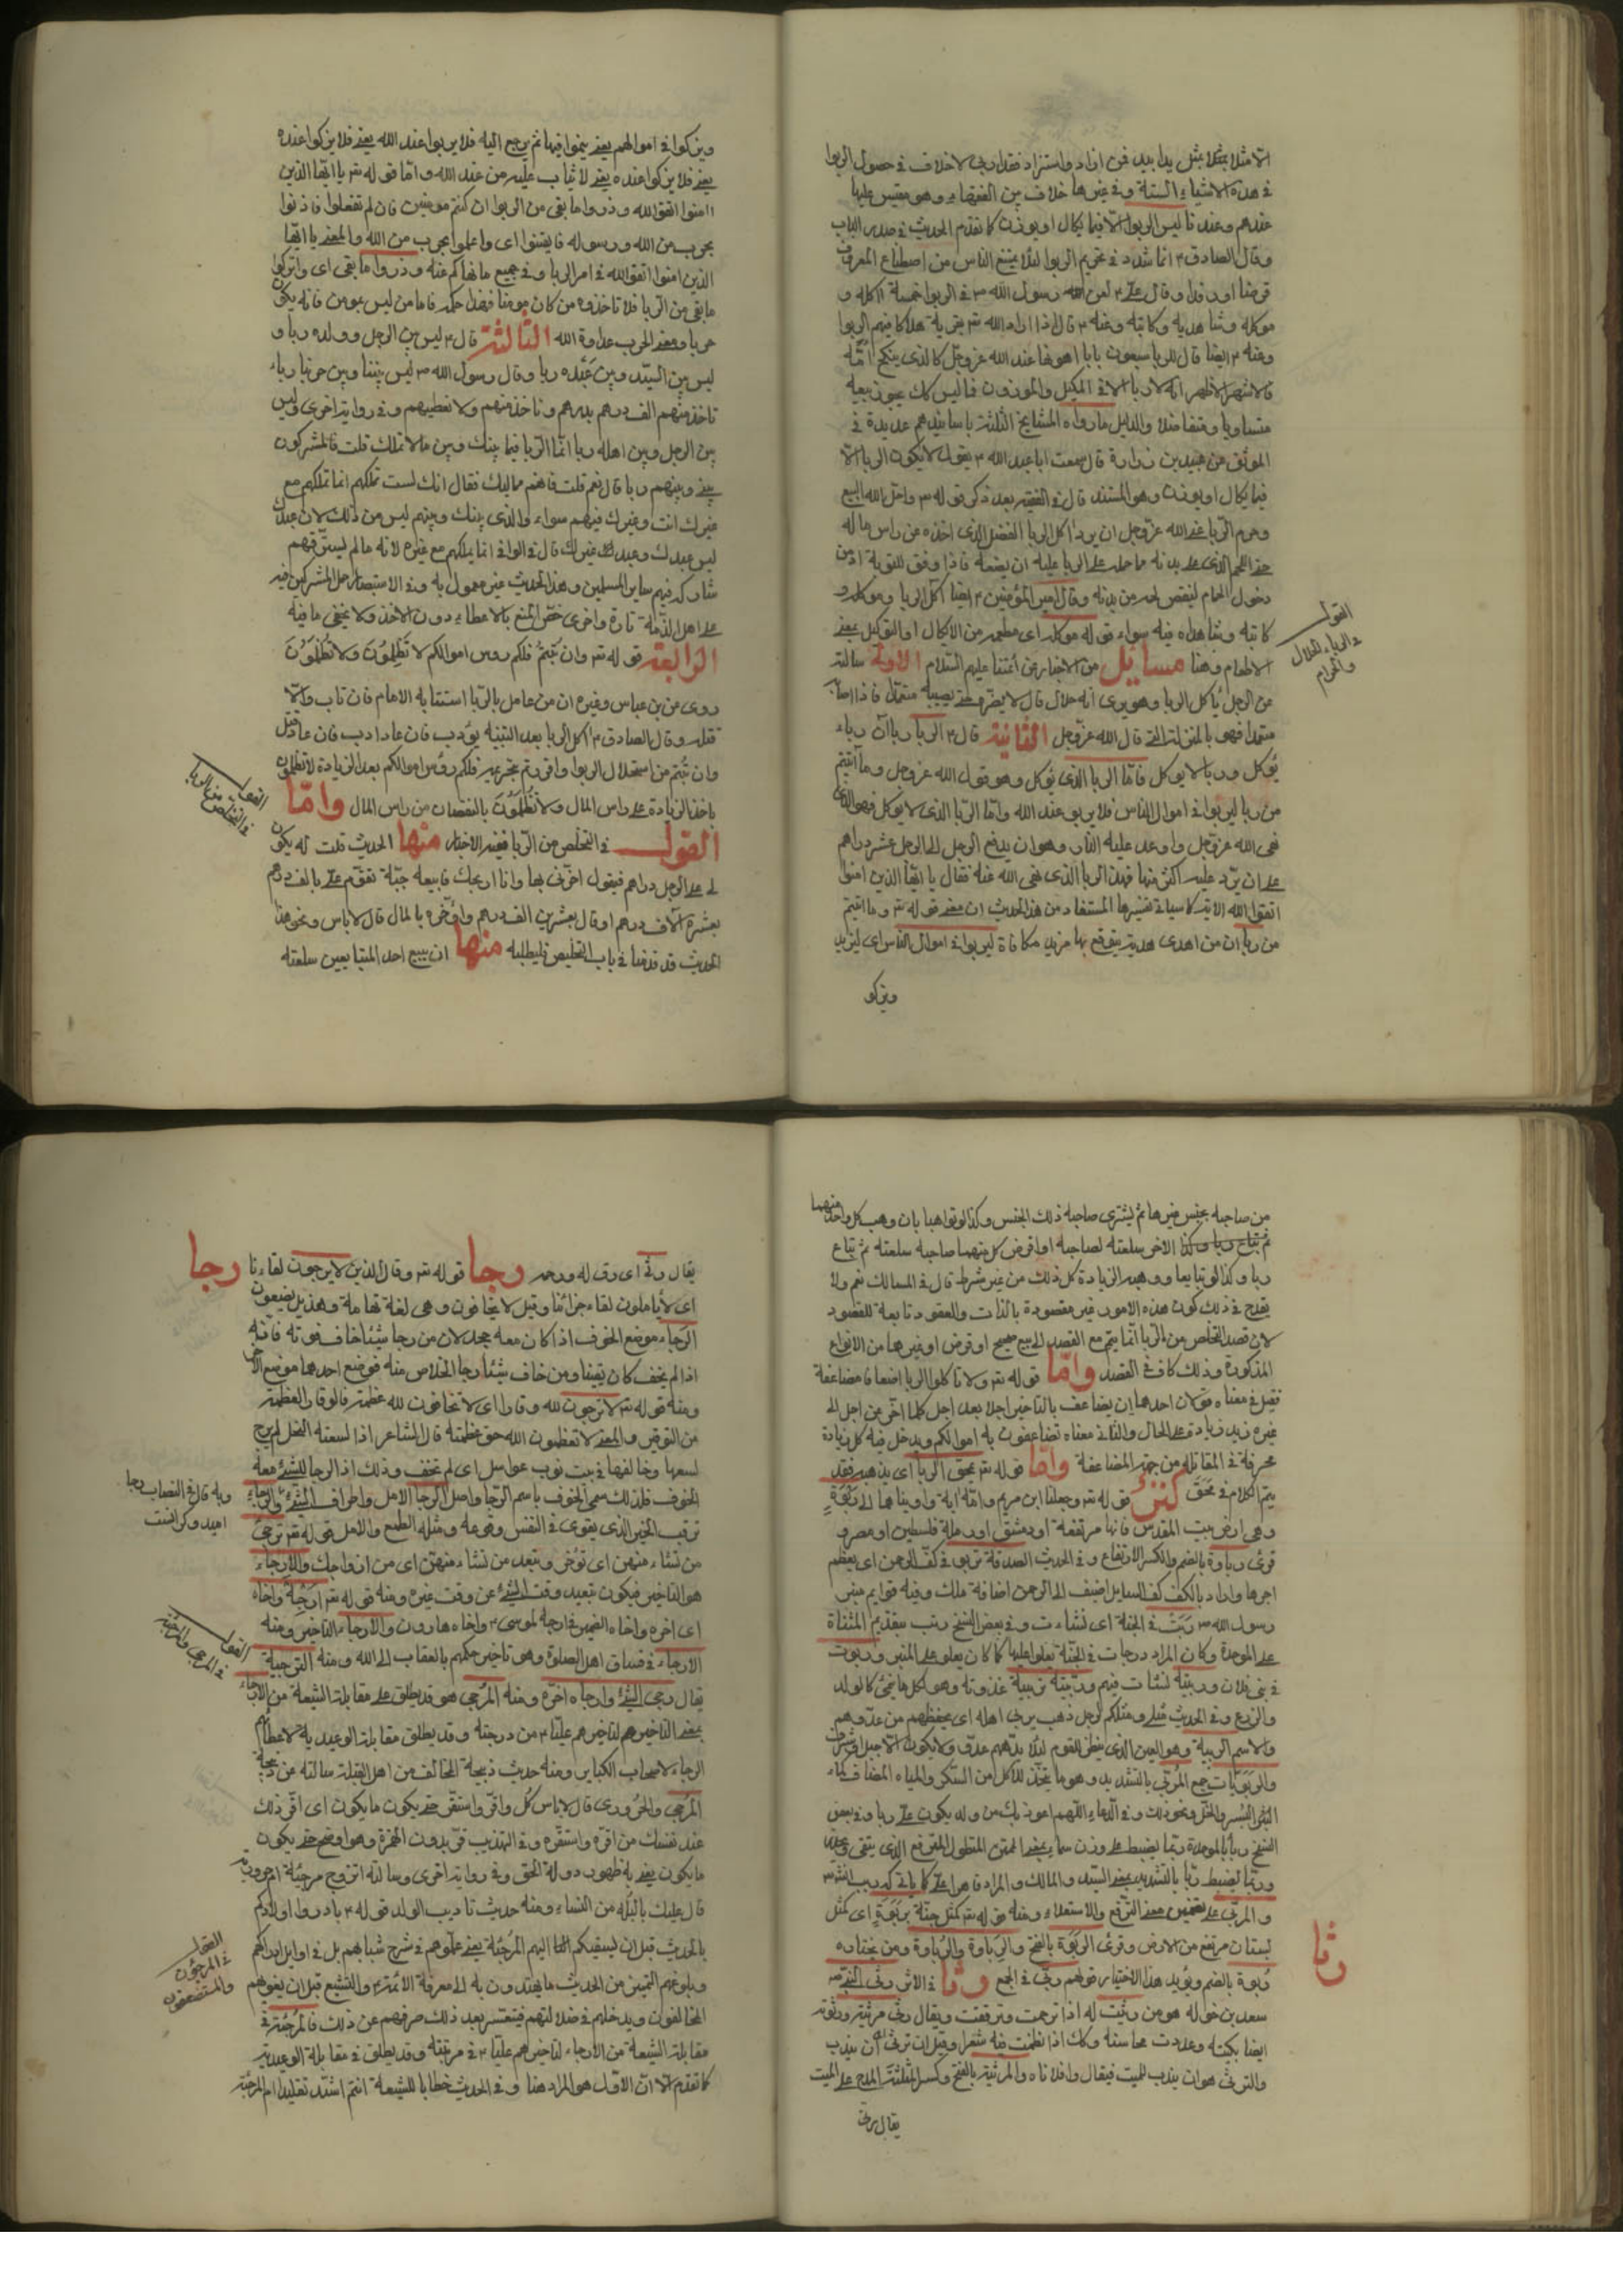 الا مثلا بمثل يدا بيد فمن ازاد واستزاد فقد اربى لا خلاف فى حصول الربوا
فى هذه الاشياء الستة وفى غيرها خلاف بين الفقهاء وهو مقيس عليها
عندهم وعندنا ليس الربوا الا فيما يكال او يوزن كما تقدم الحديث فى صدر الباب
وقال الصادق ع انما شدد فى تحريم الربوا لئلا يمتنع الناس من اصطناع المعروف
قرضا او رفدا وقال على ع لعن رسول الله ص فى الربوا خمسة آكله و
موكله وشاهديه وكاتبه وعنه ع قال اذا اراد الله بقرية هلاكا فيهم الربوا
وعنه ع ايضا قال للربا سبعون بابا اهونها عند الله عز وجل كالذى ينكح امه
فالاشهر الاظهر انه لا ربا الا فى المكيل والموزون فما ليس كك يجوز بيعه
متساويا ومتفاضلا والدليل ما رواه المشايخ الثلثة باسانيدهم عديدة فى
الموثق عن عبيد بن زرارة قال سمعت ابا عبد الله ع يقول لا يكون الربا الا
فيما يكال او يوزن وهو المستند قال فى الفقيه بعد ذكر قوله واحل الله البيع
وحرم الربا عند الله عز وجل ان يرد آكل الربا الفضل الذى اخذه عن راس ماله
حتى اللحم الذى على بدنه مما حمله على الربا عليه ان يضعه فاذا وفق للتوبة ادمن
دخول الحمام لينقص لحمه من بدنه وقال امير المؤمنين ع ايضا آكل الربا وموكله و
كاتبه وشاهداه فيه سواء قوله موكله اى مطعمه من الاكال او التوكيل بمعنى
الاطعام وهنا مسائل من الاخبار عن أئمتنا عليهم السلام الاولى سالته
عن الرجل يأكل الربا وهو يرى انه حلال قال لا يضره حتى يصيبه متعمدا فاذا اصابه
متعمدا فهو بالمنزلة التى قال الله عز وجل الثانية قال ع الربا رباآن رباء
يؤكل وربا لا يوكل فاما الربا الذى يوكل وهو قول الله عز وجل وما آتيتم
من ربا ليربوا فى اموال الناس فلا يربو عند الله واما الربا الذى لا يوكل فهو الذى
نهى الله عز وجل واوعد عليه النار وهو ان يدفع الرجل الى الرجل عشر دراهم
على ان يرد عليه اكثر منها فهذا الربا الذى نهى الله عنه فقال يا ايها الذين امنوا
اتقوا الله الاية كما سياتى تفسيرها المستفاد من هذا الحديث ان معنى قوله وما اتيتم
من ربا ان من اهدى هدية يتوقع بها مزيد مكافاة ليربوا فى اموال الناس اى ليزيد
ويزكو
القول
فى الرباء الحلال
والحرام
ويزكوا فى اموالهم يعنى ينموا فيها ثم يرجع اليه فلا يربوا عند الله يعنى فلا يزكوا عنده
يعنى فلا يزكوا عنده يعنى لا يثاب عليه من عند الله واما قوله يا ايها الذين
امنوا اتقوا الله وذروا ما بقى من الربوا ان كنتم مومنين فان لم تفعلوا فاذنوا
بحرب من الله ورسوله فايقنوا اى واعلموا بحرب من الله والمعنى يا ايها
الذين امنوا اتقوا الله فى امر الربا وفى جميع ما نهاكم عنه وذروا ما بقى اى واتركوا
ما بقى من الربا فلا تاخذوه من كان مومنا فهذا حكمه فاما من ليس بمومن فانه يكون
حربا ومعنى الحرب عداوة الله الثالثة قال ع ليس بين الرجل وولده ربا و
ليس بين السيد وبين عبده ربا وقال رسول الله ص ليس بيننا وبين حربنا رباء
ناخذ منهم الف درهم بدرهم وناخذ منهم ولا نعطيهم وفى رواية اخرى وليس
بين الرجل وبين اهله ربا انما الربا فيما بينك وبين ما لا تملك قلت فالمشركون
بينى وبينهم ربا قال نعم قلت فانهم مماليك فقال انك لست تملكهم انما تملكهم مع
غيرك انت وغيرك فيهم سواء والذى بينك وبينهم ليس من ذلك لان عبدك
ليس عبدك وعبد غيرك قال فى الوافى انما يملكهم مع غيره لانه ما لم يسترقهم
شاركه فيهم ساير المسلمين وهذا الحديث غير معمول به وفى الاستبصار حمل المشركين فيه
على اهل الذمة تارة واخرى خص المنع بالاعطاء دون الاخذ ولا يخفى ما فيه
الرابعة قوله وان تبتم فلكم روس اموالكم لا تظلمون ولا تظلمون
روى عن بن عباس وغيره ان من عامل بالربا استتابه الامام فان تاب والا
قتله وقال الصادق ع آكل الربا بعد البينة يؤدب فان عاد ادب فان عاد قتل
وان تبتم من استحلال الربوا واقررتم بتحريمه فلكم رؤس اموالكم بعد الزيادة لا تظلمون
باخذ الزيادة على راس المال ولا تظلمون بالنقصان من راس المال واما
القول فى التخلص من الربا ففيه الاخبار منها الحديث قلت له يكون
لى على الرجل دراهم فيقول اخرنى بها وانا اربحك فابيعه جبة تقوم على بالف درهم
بعشرة آلاف درهم او قال بعشرين الف درهم واؤخره بالمال قال لا باس ونحو هذا
الحديث قد قدمنا فى باب التخليص فليطلبه منها ان يبيع احد المتبايعين سلعته
القول
فى التخلص من الربا
من صاحبه بجنس غيرها ثم يشترى صاحبه ذلك الجنس وكذا لو تواهبا بان وهب كل واحد منهما
الاخر سلعته لصاحبه او اقرض كل منهما صاحبه سلعته ثم تباع
ربا وكذا لو تبايعا ووهبه الزيادة كل ذلك من غير شرط قال فى المسالك نعم ولا
يقدح فى ذلك كون هذه الامور غير مقصودة بالذات والعقود تابعة للقصود
لان قصد التخلص من الربا انما يتم مع القصد الى بيع صحيح او قرض او غيرهما من الانواع
المذكورة وذلك كاف فى القصد واما قوله ولا تاكلوا الربا اضعافا مضاعفة
فقيل فى معناه قولان احدهما ان يضاعف بالتاخير اجلا بعد اجل كلما اخر عن اجل الى
غيره زيد زيادة على الحال والثانى معناه تضاعفون به اموالكم ويدخل فيه كل زيادة
محرمة فى المقابلة من جهة المضاعفة واما قوله يمحق الربا اى يذهبه فقد
يتم الكلام فى محق كنز قوله وجعلنا ابن مريم وامه اية واويناهما الى ربوة
وهى ارض بيت المقدس فانها مرتفعة او دمشق او رملة فلسطين او مصر و
قرئ رباوة بالضم والكسر الارتفاع وفى الحديث الصدقة تربو فى كف الرحمن اى يعظم
اجرها واراد بالكف كف السايل اضيف الى الرحمن اضافة ملك وفيه قوايم منبر
رسول الله ص ربت فى الجنة اى نشات وفى بعض النسخ رتب بتقديم المثناة
على الموحدة وكان المراد درجات فى الجنة يعلو عليها كما كان يعلو على المنبر وربوت
فى بنى فلان وربيت نشات فيهم وربيته تربية غذوته وهو لكل ما ينمى كالولد
والزرع وفى الحديث مثلى ومثلكم كرجل ذهب يربى اهله اى يحفظهم من عدوهم
والاسم الربية وهو العين الذى ينظر للقوم لئلا يدهمهم عدو ولا يكون الا جبل او شرف
والمربيات جمع المربى بالتشديد وهو ما يتخذ للاكل من السكر والمياه المضاف
ونحو ذلك وفى الدعاء اللهم اعوذ بك من ولد يكون على ربا وفى بعض
النسخ
وربما يضبط ربا بالتشديد بمعنى السيد والمالك والمراد
والمربى على تضمين معنى الترفع والاستعلاء ومنه قوله كمثل جنة بربوة اى كمثل
بستان مرتفع من الارض وقرئ الربوة بالفتح والرباوة والرباوة ومن يختار
ربوة بالضم ويؤيد هذا الاختيار قولهم ربى فى الجمع رثا فى الاثر رثى النبى ص
سعد بن خوله هو من رثيت له اذا ترحمت وترققت ويقال رثى مرثية ورثوته
ايضا بكيته وعددت محاسنه وكك اذا نظمت فيه شعرا وقيل ان ترثى ان يندب
والترثى هو ان يندب الميت فيقال وافلاناه والمرثية بالفتح وكسر المثلثة المدح على الميت
يقال رثى
رثا
يقال رثى اى رق له ورحم رجا قوله وقال الذين لا يرجون لقاءنا
رجا
اى لا يأملون لقاء جزائنا وقيل لا يخافون وهى لغة تهامة وهذيل يضعون
الرجاء موضع الخوف اذا كان معه جحد لان من رجا شيئا خاف فوته فانه
اذا لم يخف كان يقينا ومن خاف شيئا رجا الخلاص منه فوضع احدهما موضع الاخر
ومنه قوله لا ترجون لله وقارا اى لا تخافون لله عظمة فالوقار العظمة
من التوقير والمعنى لا تعظمون الله حق عظمته قال الشاعر اذا لسعته النحل لم يرج
لسعها وخالفها فى بيت نوب عواسل اى لم تخف وذلك اذ الرجا للشئ معه
الخوف فلذلك سمى الخوف باسم الرجا واصل الرجا الامل واطراف الشئ
ترقب الخير الذى يقوى فى النفس وقوعه ومثله الطمع والامل قوله ترجى
من تشاء منهن اى تؤخر وتبعد من تشاء منهن اى من ازواجك والارجاء
هو التاخير فيكون تبعيد وقت الشئ عن وقت غيره ومنه قوله ارجه واخاه
اى اخره واخاه الضمير فى ارجه لموسى ع واخاه هارون والارجاء التاخير ومنه
الارجاء فى فساق اهل الصلوة وهو تاخير حكمهم بالعقاب الى الله ومنه الترجية
يقال رجى الشئ وارجاه اخره ومنه المرجى هو قد يطلق على مقابلة الشيعة من الارجاء
بمعنى التاخير هم لتاخيرهم عليا ع من درجته وقد يطلق مقابلة الوعيدية لاعطاء
الرجاء لاصحاب الكباير ومنه حديث ذبيحة المخالف من اهل القبلة سالته عن ذبيحة
المرجى والحرورى قال لا باس كل واقر واستقر حتى يكون ما يكون اى اقر ذلك
عند نفسك من اقره واستقره وفى التهذيب قر بدون الهمزة وهو اوضح حتى يكون
ما يكون يعنى به ظهور دولة الحق وفى رواية اخرى وسالته اتزوج مرجئة ام حرورية
قال عليك بالبله من النساء ومنه حديث تاديب الولد قوله ع بادروا اولادكم
بالحديث قبل ان يسبقكم اليهم المرجئة يعنى علموهم فى شرخ شبابهم بل فى اوايل ادراكهم
وبلوغهم التميز من الحديث ما يهتدون به الى معرفة الائمة ع والتشيع قبل ان يغويهم
المخالفون ويدخلهم فى ضلالتهم فيتعسر بعد ذلك صرفهم عن ذلك فالمرجئة فى
مقابلة الشيعة من الارجاء لتاخيرهم عليا ع فى مرتبته وقد يطلق فى مقابلة الوعيدية
كما تقدم الا ان الاول هو المراد هنا وفى الحديث خطابا للشيعة انتم اشد تقليدا ام المرجئة
وبه قال فى النصاب رجا
القول
القول
فى المرجئون
والمستضعفون